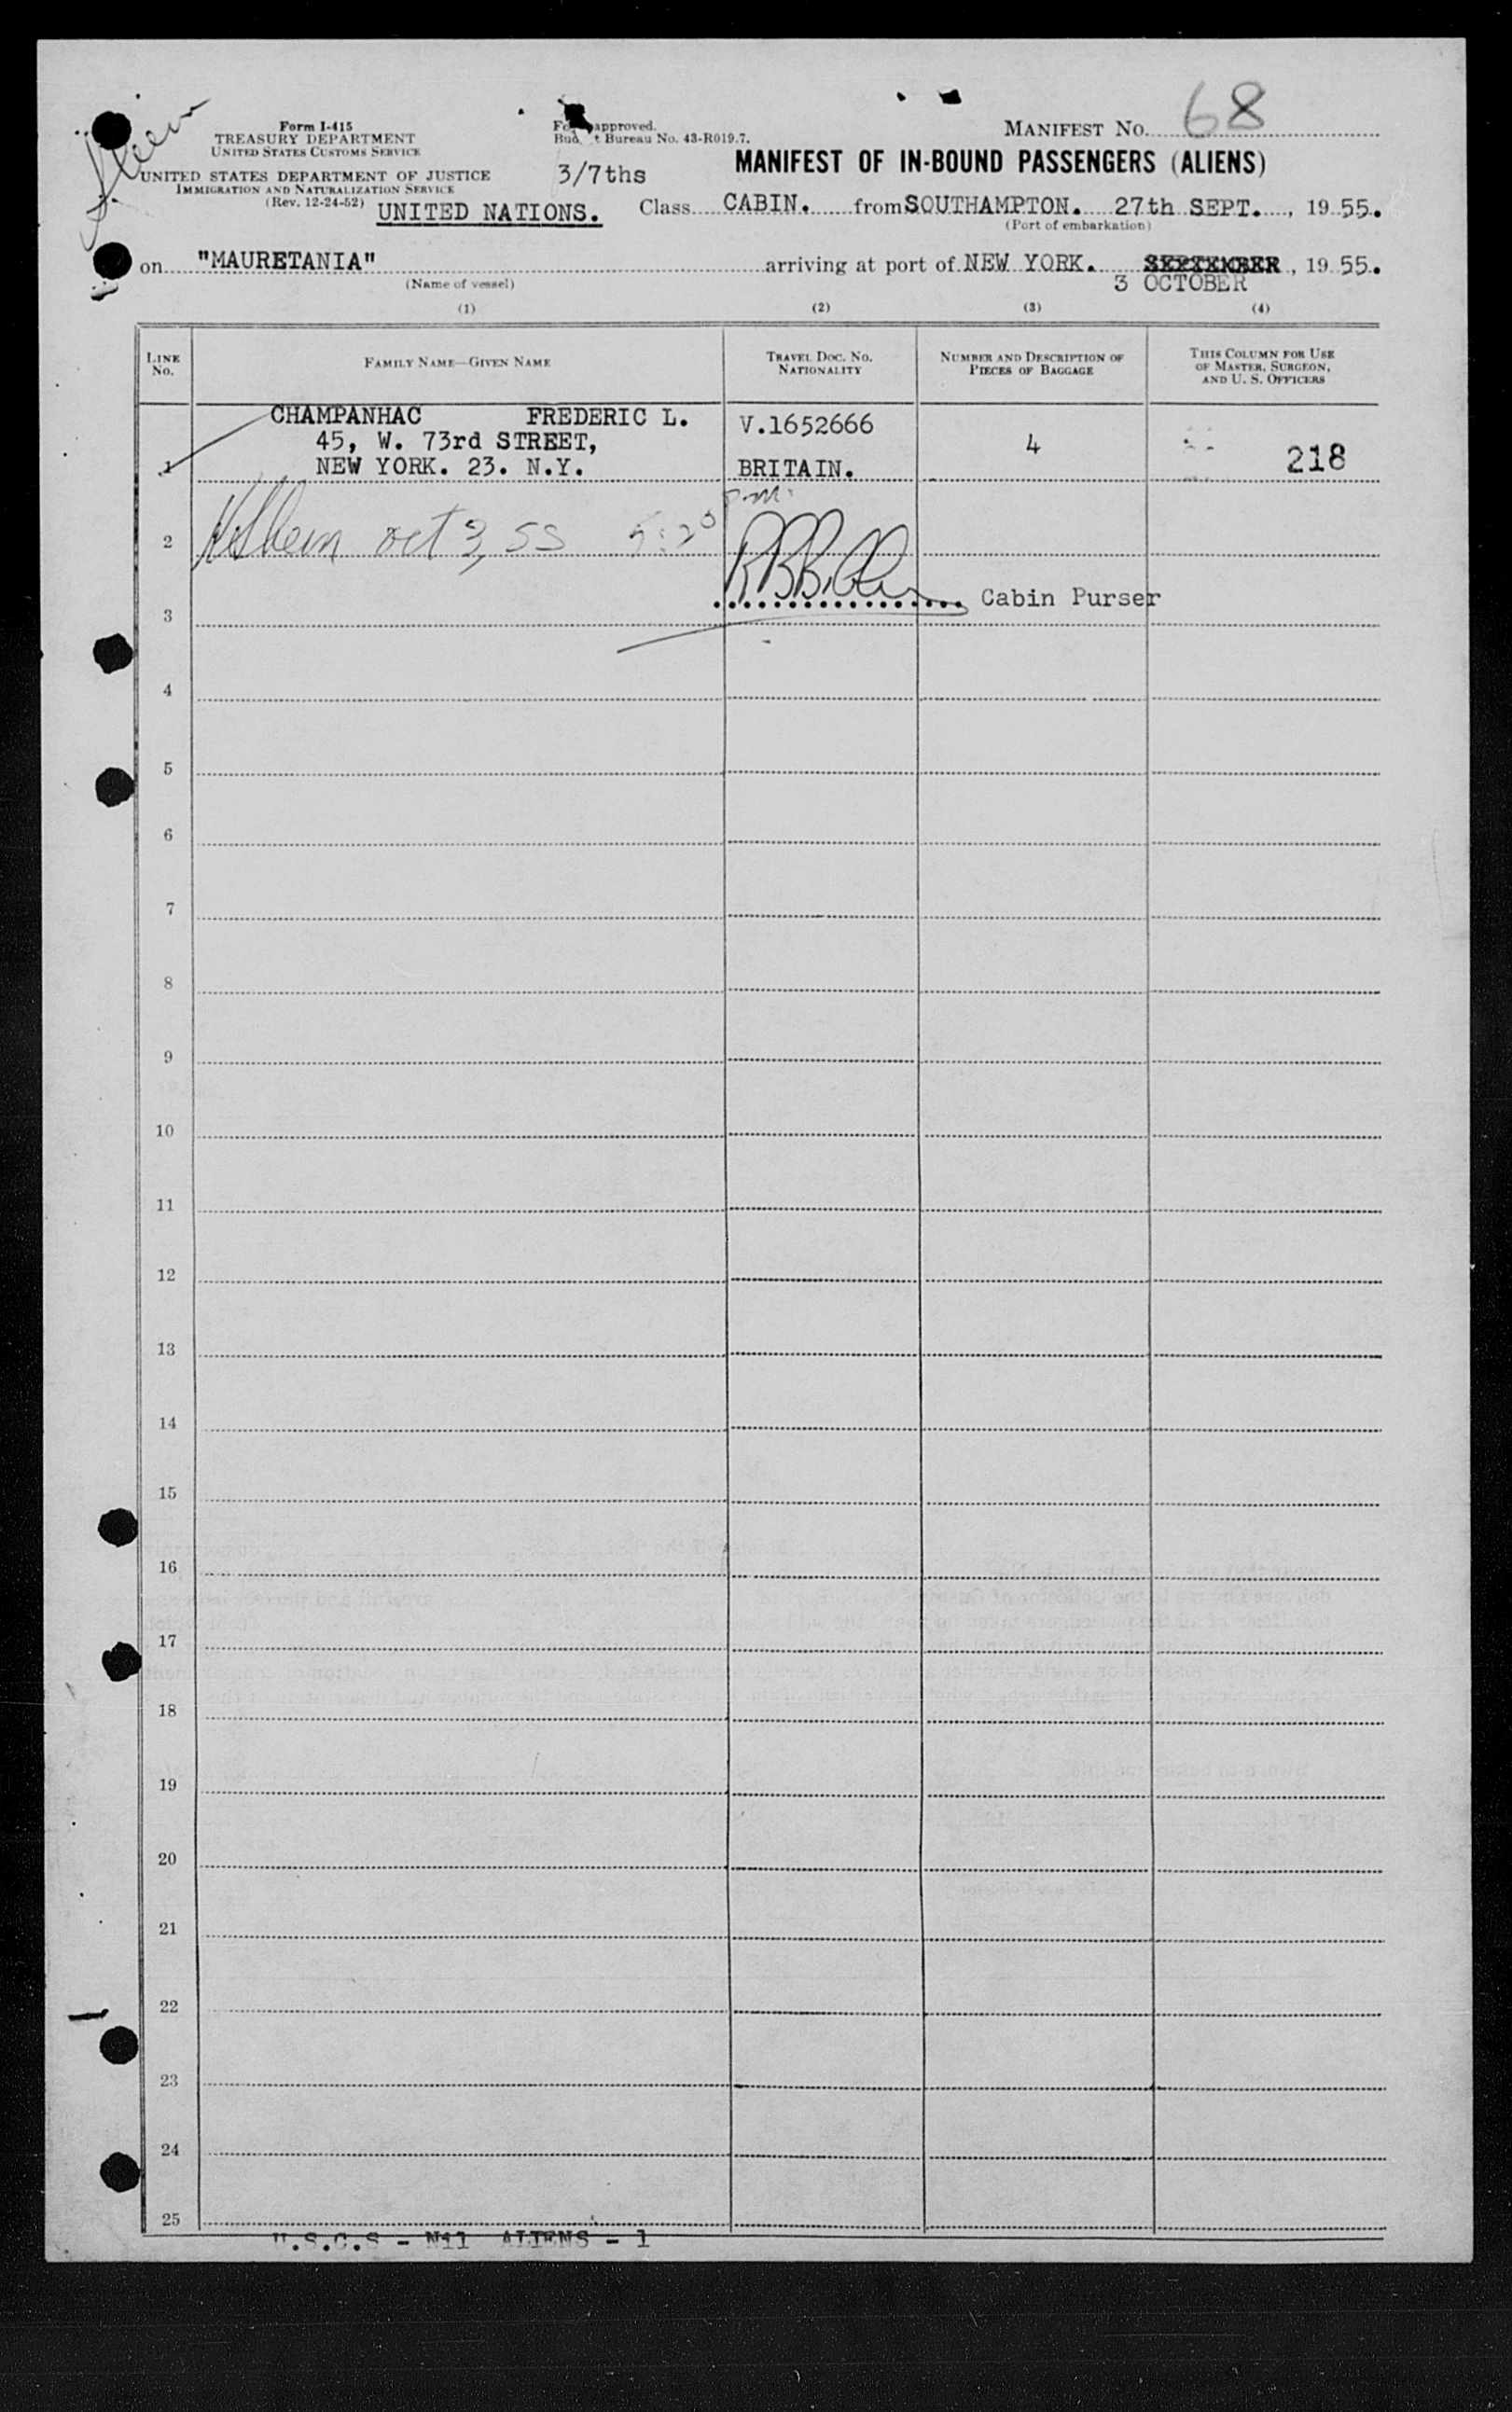 68
Form I-415
TREASURY DEPARTMENT
UNITED STATES CUSTOMS SERVICE
UNITED STATES DEPARTMENT OF JUSTICE
IMMIGRATION AND NATURALIZATION SERVICE
(Rev. 12-24-52)
approved.
Bureau No. 43-R019.7.
MANIFEST NO.
3/7ths
MANIFEST OF IN-BOUND PASSENGERS (ALIENS)
UNITED NATIONS. Class CABIN. from SOUTHAMPTON. 27th SEPT. , 19 55.
(Port of embarkation)
on "MAURETANIA" arriving at port of NEW YORK. SEPTEMBER , 19 55.
3 OCTOBER
(Name of vessel)
(1) (2) (3) (4)
LINE No. FAMILY NAME—GIVEN NAME TRAVEL DOC. NO. NATIONALITY NUMBER AND DESCRIPTION OF PIECES OF BAGGAGE THIS COLUMN FOR USE OF MASTER, SURGEON, AND U. S. OFFICERS
CHAMPANHAC FREDERIC L. V.1652666
45, W. 73rd STREET, 4
1 NEW YORK. 23. N.Y. BRITAIN. 218
2 Oct 3, 55 5:20 pm.
Cabin Purser
3
4
5
6
7
8
9
10
11
12
13
14
15
16
17
18
19
20
21
22
23
24
25
U.S.C.S - Nil ALIENS - 1